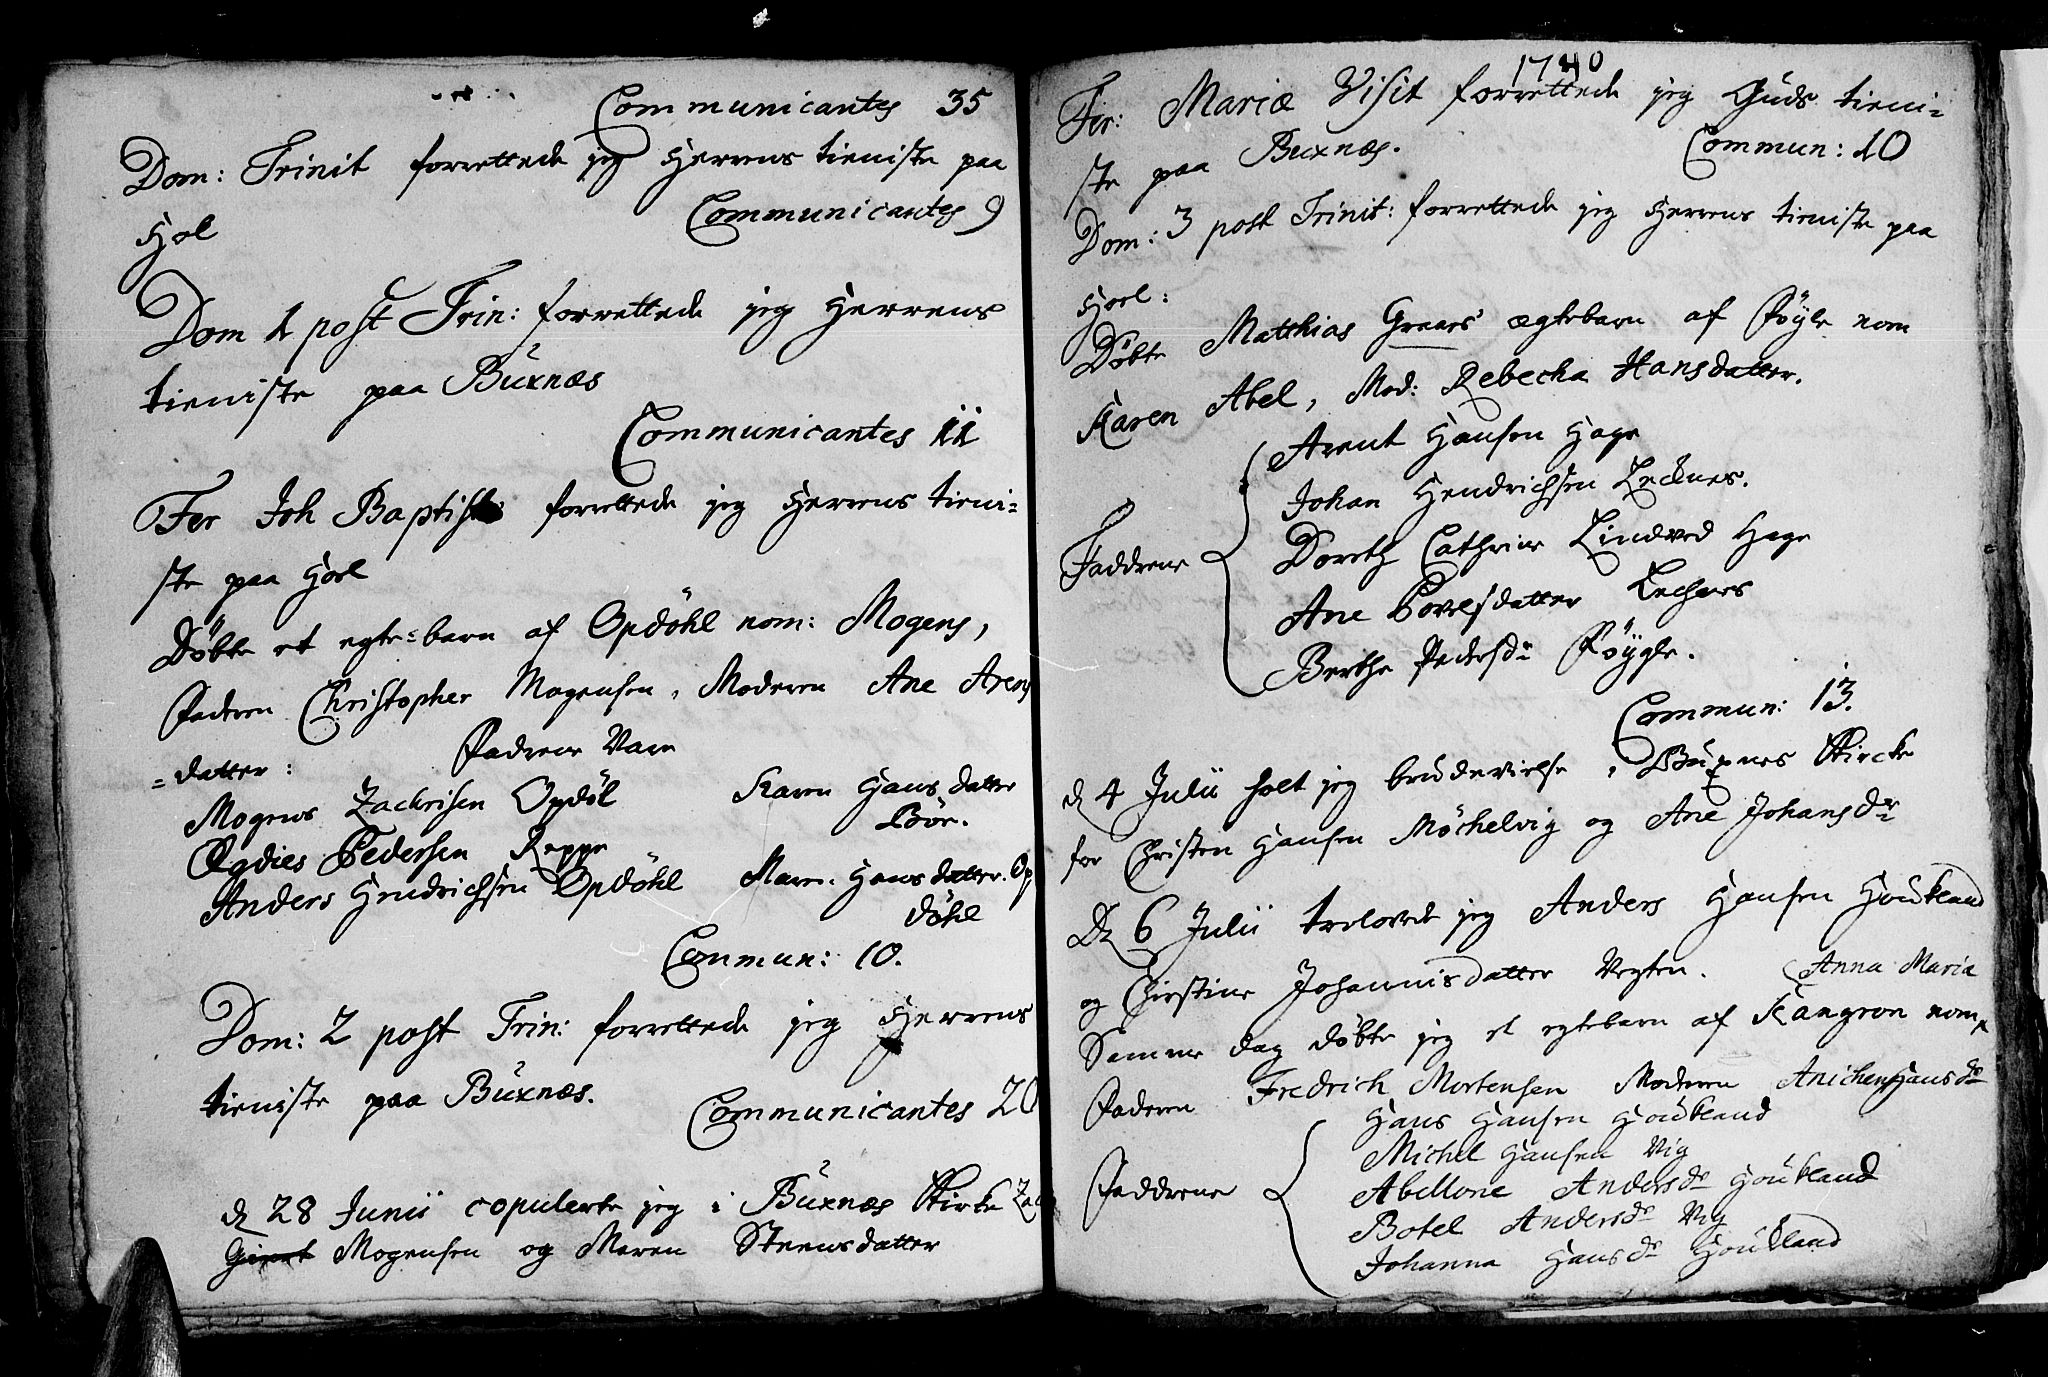 Communicantes 35
Dom: Trinit forrettede jeg Herrens tieniste paa
Hol
Communicantes 9
Dom 1 post Trin: forrettede jeg Herrens
tieniste paa Buxnæs
Communicantes 11
Fer Joh Baptist: forrettede jeg Herrens tieni=
ste paa Hoel
Døbte et egte=barn af Opdøhl nom: Mogens,
Faderen Christopher Mogensen, Moderen Ane Arens
=datter:
Fadrene Vare
Mogens Zachrisen Opdøl
Karen Hans datter
Bör.
Ægdies Pedersen Reppe
Anders Hendrichsen Opdøhl
Maren Hans datter. Op
døhl
Commun: 10.
Dom: 2 post Trin: forrettede jeg Herrens
tieniste paa Buxnæs.
Communicantes 20
d 28 Junii copulerte jeg i Buxnæs Kirke
Mogensen og Maren Steensdatter
1740
Fer: Mariæ Visit forrettede jeg Guds tieni=
ste paa Buxnæs.
Commun: 10
Dom: 3 post Trinit: forrettede jeg Herrens tieniste paa
Hoel:
Døbte Matthias Graars ægtebarn af Føyle nom
Karen Abel, Mod: Rebecka Hansdatter.
Faddrene
Arent Hansen Hage
Johan Hendrichsen Lecknes.
Doreth Cathrine Lindved Hage
Ane Povelsdatter Lechnes
Berthe Pedersdr Føygle.
Commun: 13.
d 4 Julii holt jeg brudevielse i Buxnes Kircke
for Christen Hansen Møchelvig og Ane Johansdr
D 6 Julii trolovede jeg Anders Hansen Houkland
og Chirstine Johannisdatter Vegten.
Anna Maria
Samme dag døbte jeg et egtebarn af Kangron nom
Faderen Fredrich Mortensen Moderen Anichen Hansdr
Faddrene
Hans Hansen Houkland
Michel Hansen Vig
Abellone Andersdr Houkland
Botel Andersdr Vig
Johanna Hansdr Houkland